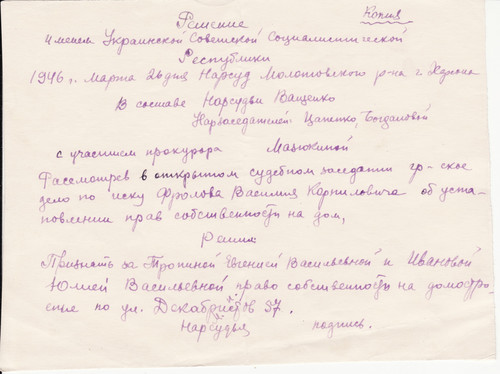 Копия
Решение
Именем Украинской Советской Социалистической
Республики
1946 г. Марта 26 дня Нарсуд Молотовского р-на г. Херсона
В составе Нарсудьи Ващенко
Нарзаседателей: Цапенко, Богдановой
с участием прокурора Мацюкиной
Рассмотрев в открытом судебном заседании гр-ское
дело по иску Фролова Василия Корниловича об уста-
новлении прав собственности на дом,
Решил
Признать за Тропиной Евгенией Васильевной и Ивановой
Юлией Васильевной право собственности на домостро-
ение по ул. Декабристов 37.
Нарсудья подпись.